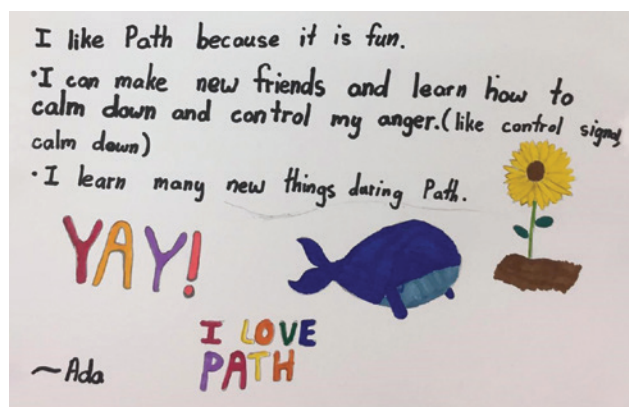 I like Path because it is fun.
•I can make new friends and learn how to
calm down and control my anger.(like control signal,
calm down)
•I learn many new things during Path.
YAY!
I LOVE
PATH
~Ada